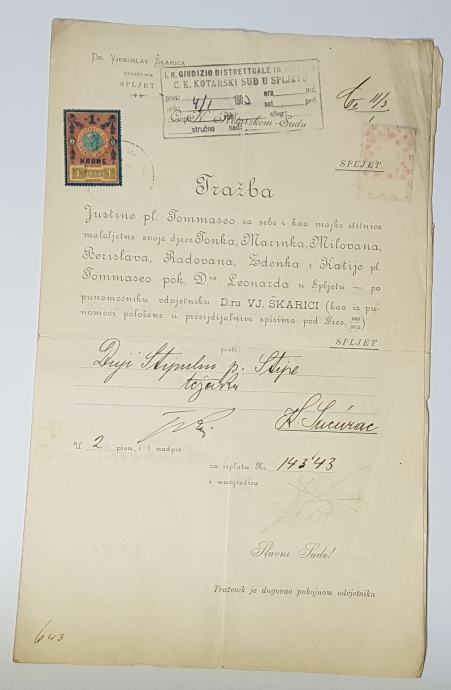 DR. VJEKOSLAV ŠKARICA
ODVJETNIK
SPLJET
I. R. GIUDIZIO DISTRETTUALE IN
C. K. KOTARSKI SUD U SPLJETU
4/1
stručno
C. K. Kotarskom Sudu
Ce II/3
1
KRONE
1 1898 1
SPLJET
Tražba
Justine pl. Tommaseo za sebe i kao majke štitnice
maloljetne svoje djece Tonka, Marinka, Milovana,
Berislava, Radovana, Zdenka i Katije pl.
Tommaseo pok. D.ra Leonarda u Spljetu — po
punomoćniku odvjetniku D.ru VJ. ŠKARICI (kao iz pu-
nomoći položene u presjidijalnim spisima pod Pres.
SPLJET
proti:
Duji Stipelm p. Stipe
težaku
K. Sućurac
U 2 pisu, i 1 nadpis
za izplatu Kr. 143'43
i nuzgredica
Slavni Sude!
Traženik je dugovao pokojnom odvjetniku
643